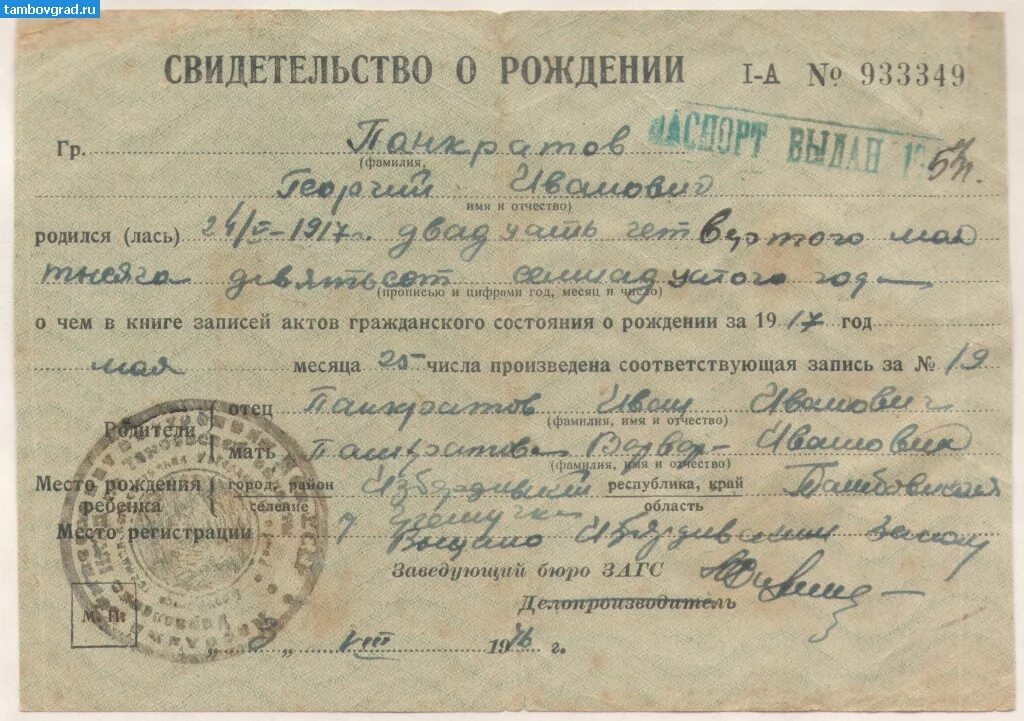 tambovgrad.ru
СВИДЕТЕЛЬСТВО О РОЖДЕНИИ I-А № 933349
ПАСПОРТ ВЫДАН 19
Гр. Панкратов
(фамилия,
Георгий Иванович
имя и отчество)
родился (лась) 24/V-1917г. двадцать четвертого мая
тысяча девятьсот семнадцатого года
(прописью и цифрами год, месяц и число)
о чем в книге записей актов гражданского состояния о рождении за 1917 год
мая месяца 25 числа произведена соответствующая запись за № 19
Родители
отец Панкратов Иван Иванович
(фамилия, имя и отчество)
мать Панкратова Ивановна
(фамилия, имя и отчество)
Место рождения ребенка
город, район Избердеевский республика, край Тамбовская
селение область
Место регистрации Выдано Избердеевским Загсом
Заведующий бюро ЗАГС
Делопроизводитель
М. П.
VIII 1946 г.